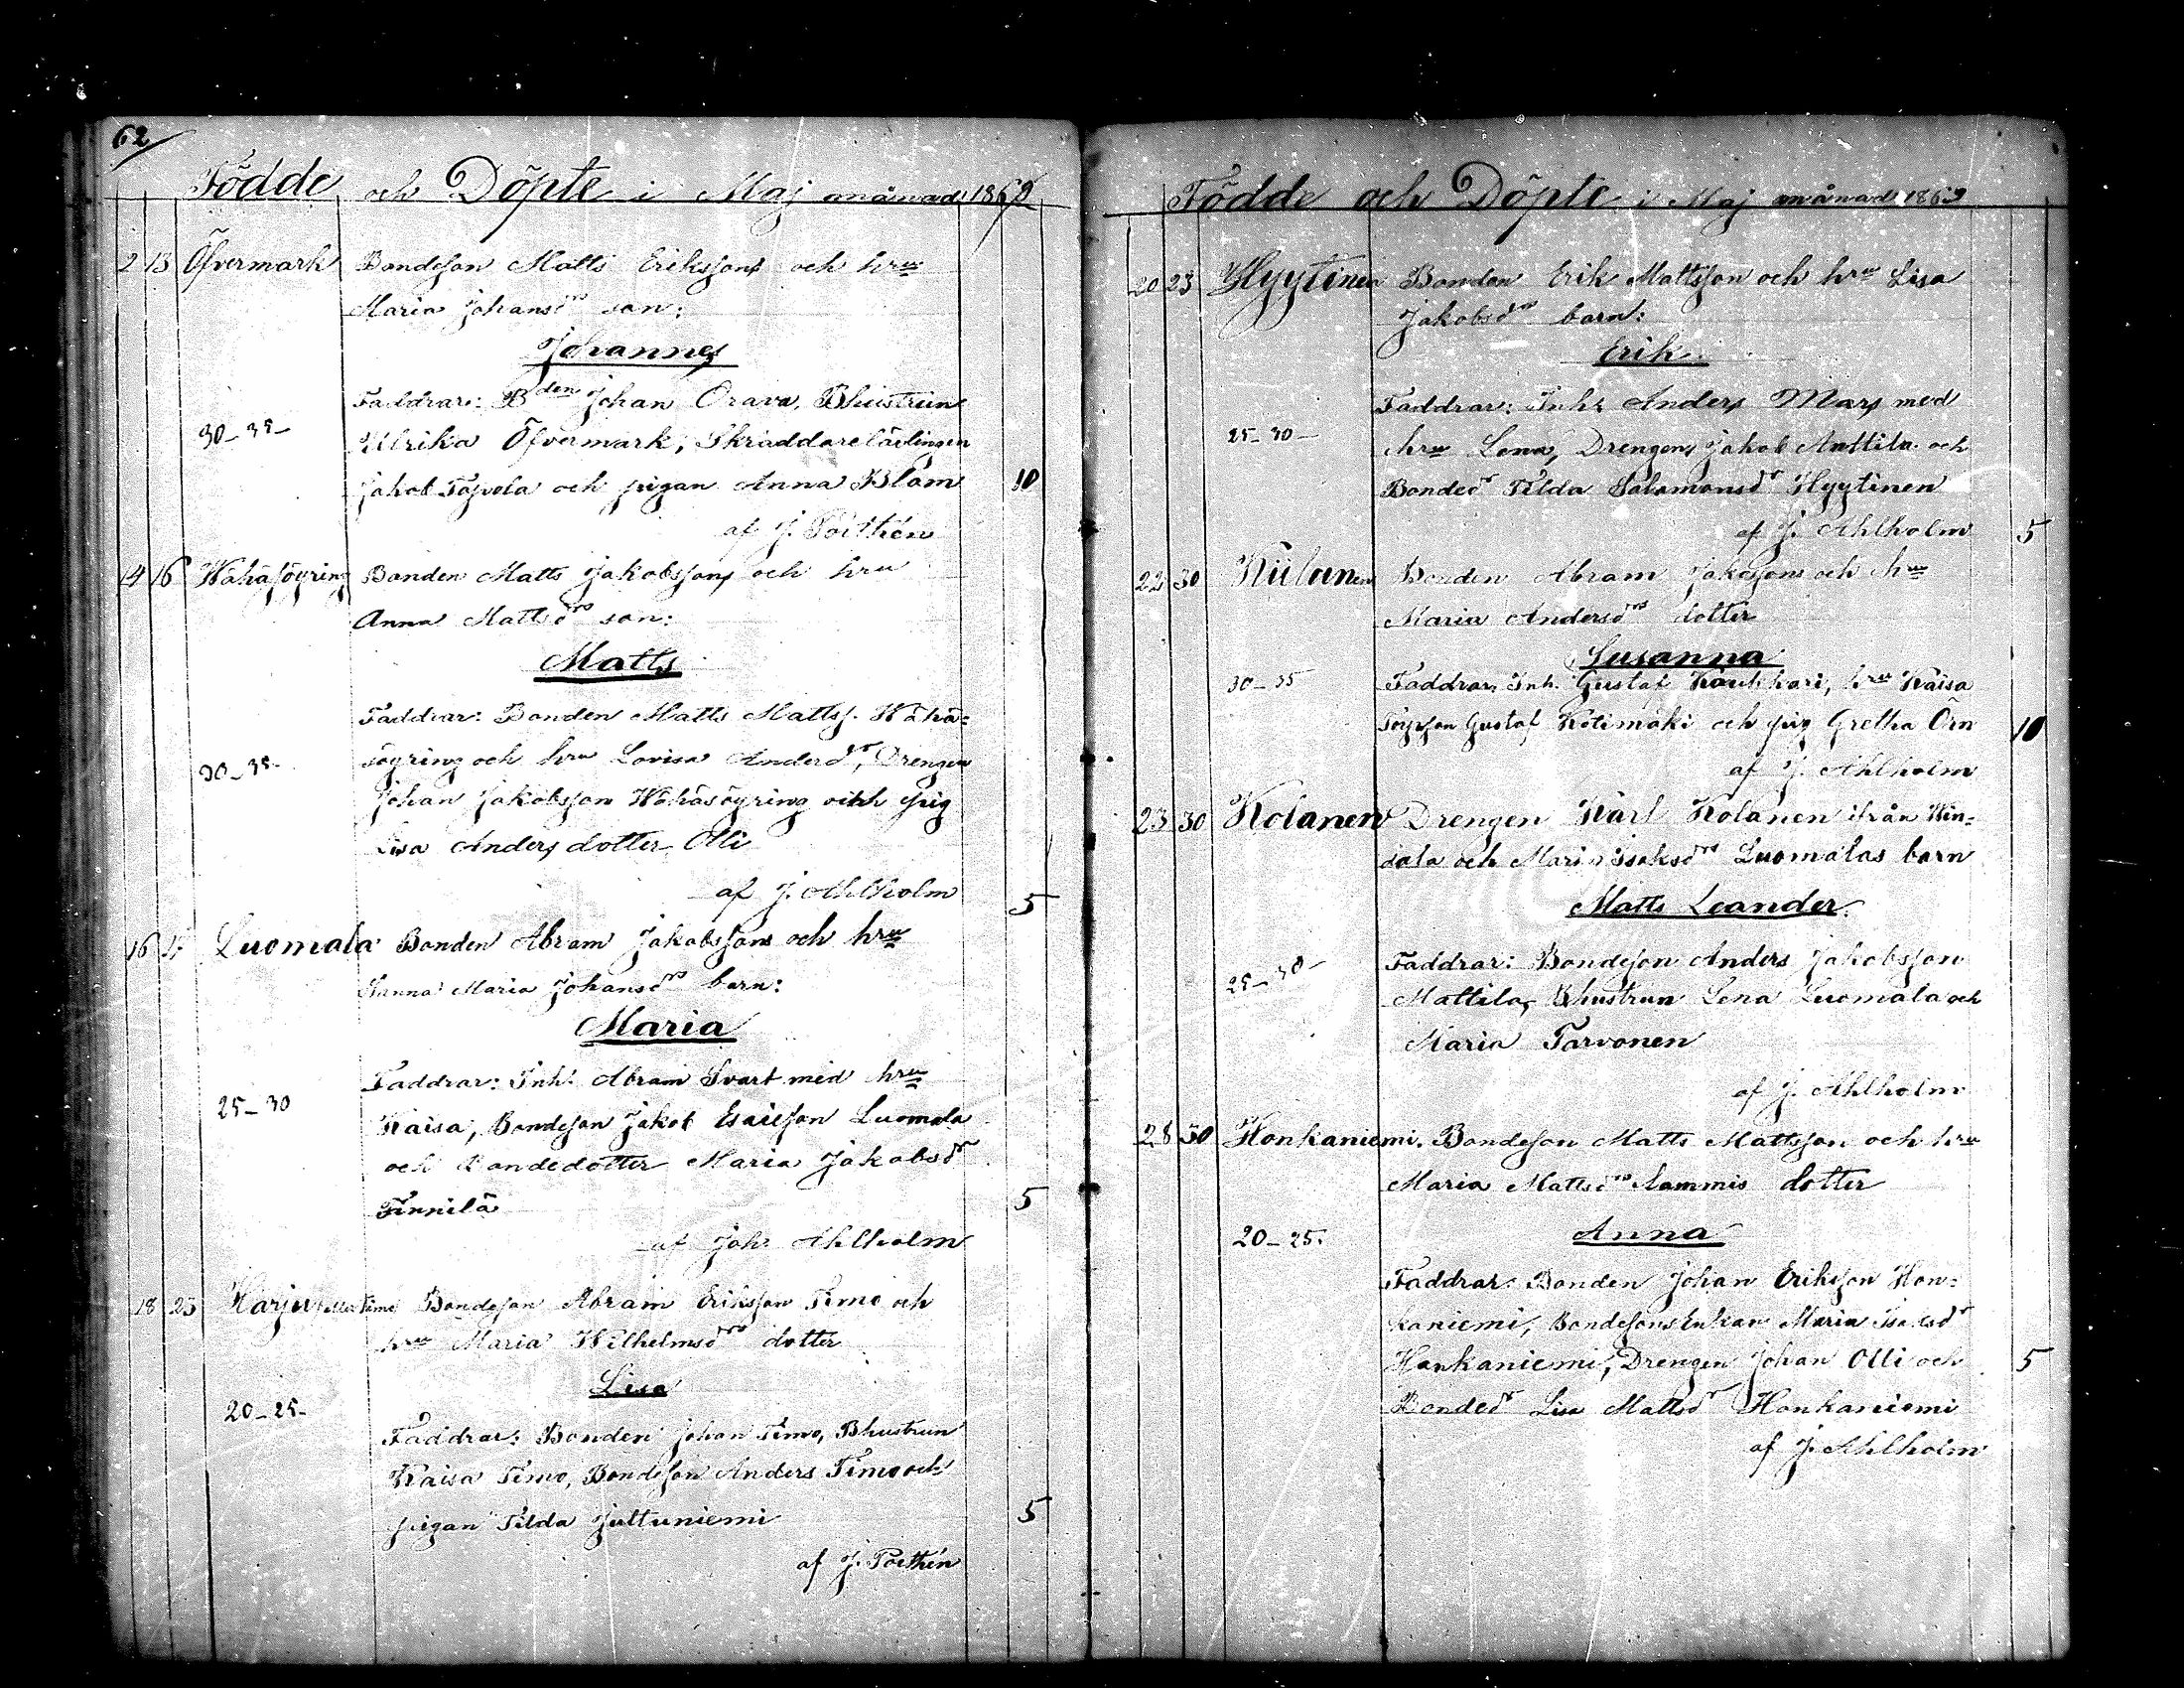 62
Födde och Döpte i Maj månad 1862
2 13 Öfvermark Bondeson Matts Erikssons och hru
Maria Johansdrs son:
Johannes
Faddrar: Bden Johan Orava, Bhustrun
30-35- Ulrika Öfvermark, Skräddarelärlingen
Jakob och pigan Anna Blom 10
af J. Poithén
14 16 Wähäsöyring Bonden Matts Jakobssons och hru
Anna Mattsdrs son:
Matts
Faddrar: Bonden Matts Mattss. Wähä=
söyring och hru Lovisa Andersdr, Drengen
30-35- Johan Jakobsson Wähäsöyring och pig
Lisa Anders dotter Olli
af J. Ahlholm 5
16 17 Luomala Bonden Abram Jakobssons och hru
Sanna Maria Johansdrs barn:
Maria
Faddrar: Inh. Abram Svart med hru
25-30 Kaisa, Bondeson Jakob Esaisson Luomala
och Bondedotter Maria Jakobsdr
Finnilä 5
af Joh. Ahlholm
18 25 Harju eller Timo Bondeson Abram Eriksson Timo och
hru Maria Wilhelmsdrs dotter
Lisa
20-25- Faddrar: Bonden Johan Timo, Bhustrun
Kaisa Timo, Bondeson Anders Timo och
pigan Tilda Juttuniemi 5
af J. Poithén
Födde och Döpte i Maj månad 1862
20 23 Hyytinen Bonden Erik Mattsson och hru Lisa
Jakobsdrs barn:
Erik
Faddrar: Inh. Anders Mars med
25-30- hru Lena, Drengen Jakob Anttila och
Bondedr Tilda Salomonsdr Hyytinen
af J. Ahlholm 5
22 30 Bonden Abram Jakssons och hru
Maria Andersdrs dotter
Susanna
30-35 Faddrar: Inh. Gustaf Kaukkari, hru Kaisa
Gustaf Kotimäki och pig Gretha Örn 10
af J. Ahlholm
23 30 Kolanen Drengen Karl Kolanen ifrån Win=
dala och Maria Isaksdrs Luomalas barn
Matts Leander
Faddrar: Bondeson Anders Jakobsson
25-30- Mattila, Bhustrun Lena Luomala och
Maria Tarvonen
af J. Ahlholm
28 30 Honkaniemi. Bondeson Matts Mattsson och hru
Maria Mattsdrs Sammis dotter
20-25. Anna
Faddrar: Bonden Johan Eriksson Hon=
kaniemi, Bondesons Enkan Maria Isaksdr
Honkaniemi, Drengen Johan Olli och 5
Bondedr Lisa Mattsdr Honkaniemi
af J. Ahlholm